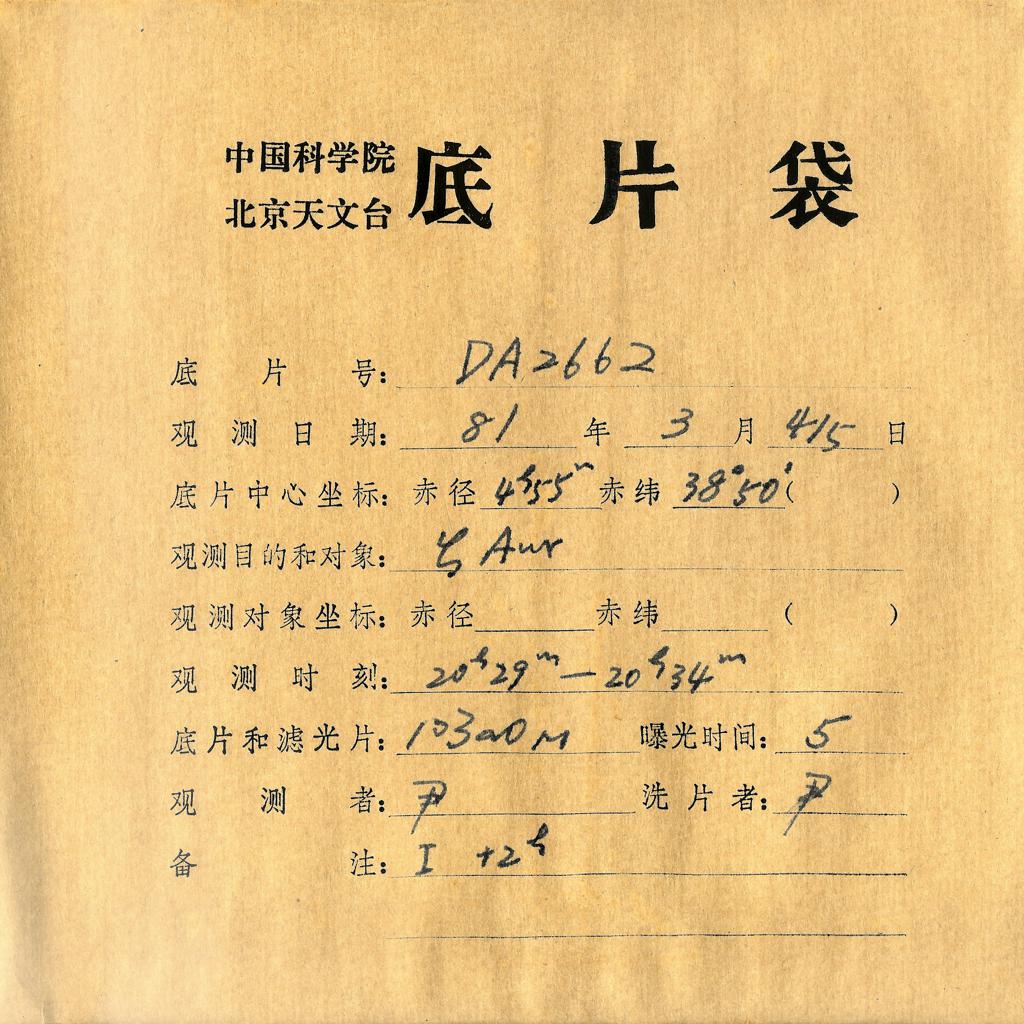 中国科学院
北京天文台
底片袋
底片号：DA2662
观测日期：81年3月4/5日
底片中心坐标：赤径4ʰ55ᵐ赤纬38°50′（ ）
观测目的和对象：ζ Aur
观测对象坐标：赤径 赤纬 （ ）
观测时刻：20ʰ29ᵐ—20ʰ34ᵐ
底片和滤光片：103aO 曝光时间：5
观测者：尹 洗片者：尹
备注：I +2ʰ